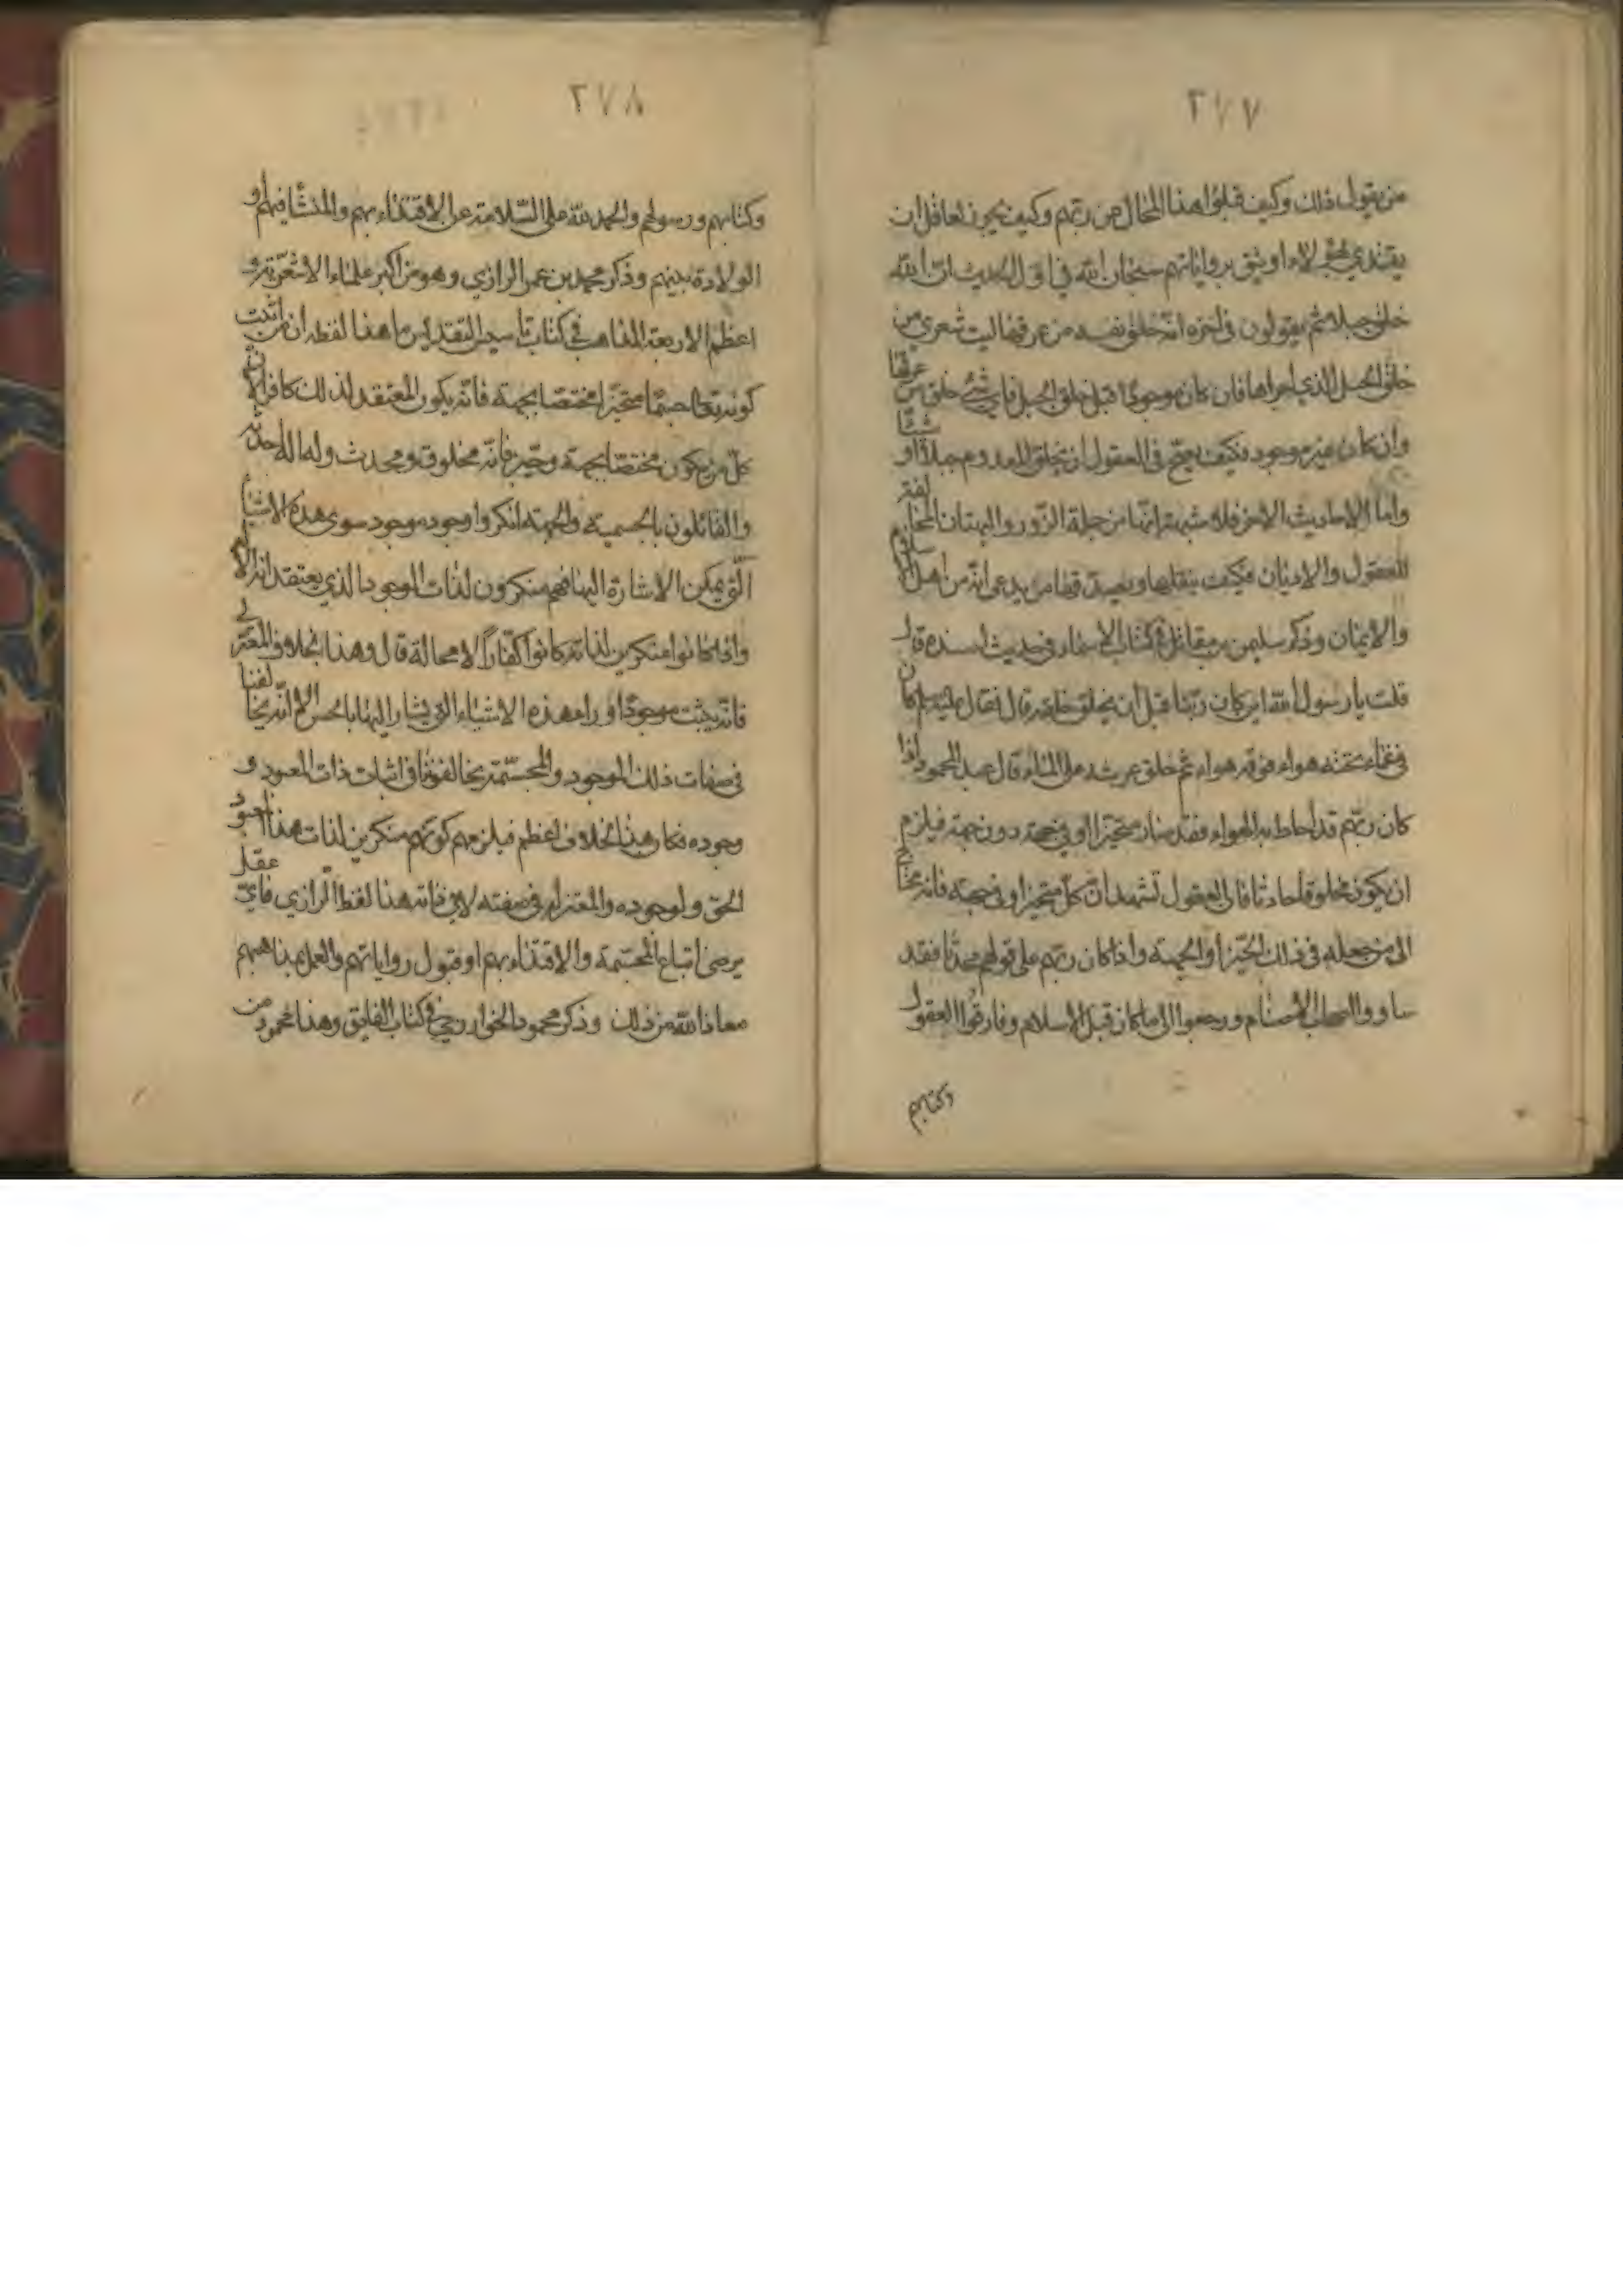 ٢٧٧
من يقول ذلك وكيف قبلوا هذا المحال عن ربهم وكيف يجوز لعاقل ان
يقتدي بهؤلاء او يثق برواياتهم سبحان الله في اول الحديث ان الله
خلق خيلا ثم يقولون في اخره انه خلق نفسه من عرقها ليت شعري من
خلق الخيل الذي اجراها فان كان موجودا قبل خلق الخيل فاي شئ خلق من عرقها
وان كان غير موجود فكيف يصح في العقول ان يخلق المعدوم خيلا او شيئا
واما الاحاديث الاخر فلا شبهة انها من جملة الزور والبهتان المخالفة
للعقول والاديان فكيف ينقلها ويصدق قطا من يدعي انه من اهل الاسلام
والايمان وذكر سليمن بن مقاتل في كتاب الاسماء في حديث اسنده قال
قلت يا رسول الله اين كان ربنا قبل ان يخلق خلقه قال فقال عليه السلام كان
في غماء تحته هواء فوقه هواء ثم خلق عرشه على الماء قال عبد المحمود اذا
كان ربهم قد احاط به الهواء فقد صار متحيزا او في جهة دون جهة فيلزم
ان يكون مخلوقا حادثا فان العقول تشهد ان كل متحيز او في جهة فانه محتاج
الى من جعله في ذلك الحيز او الجهة واذا كان ربهم على قولهم محدثا فقد
ساووا اصحاب الاصنام ورجعوا الى ما كان قبل الاسلام وفارقوا العقول
وكتابهم
٢٧٨
وكتابهم ورسولهم والحمد لله على السلامة عن الاقتداء بهم والمنشا فيهم او
الولادة بينهم وذكر محمد بن عمر الرازي وهو من اكبر علماء الاشعرية و
اعظم الاربعة المذاهب في كتاب تاسيس التقديس ما هذا لفظه ان من اثبت
كونه تعالى جسما متحيزا مختصا بجهة فانه يكون المعتقد لذلك كافرا لان
كل من يكون مختصا بجهة وحيز فانه مخلوق ومحدث وله اله احدثه
والقائلون بالجسمية والجهة انكروا وجود موجود سوى هذه الاشياء
التي يمكن الاشارة اليها فهم منكرون لذات الموجود الذي يعتقد انه الاله
واذا كانوا منكرين لذاته كانوا كفارا لا محالة قال وهذا بخلاف المعتزلي
فانه يثبت موجودا وراء هذه الاشياء التي يشار اليها بالحس الا انه يخالفنا
في صفات ذلك الموجود والمجسمة يخالفوننا في اثبات ذات المعبود و
وجوده فكان هذا الخلاف اعظم فيلزمهم كونهم منكرين لذات هذا المعبود
الحق ولوجوده والمعتزلة في صفته لا في ذاته هذا لفظ الرازي فاي عقل
يرضى اتباع المجسمة والاقتداء بهم او قبول رواياتهم والعمل بمذاهبهم
معاذ الله من ذلك وذكر محمود الخوارزمي في كتاب الفايق وهذا محمود من